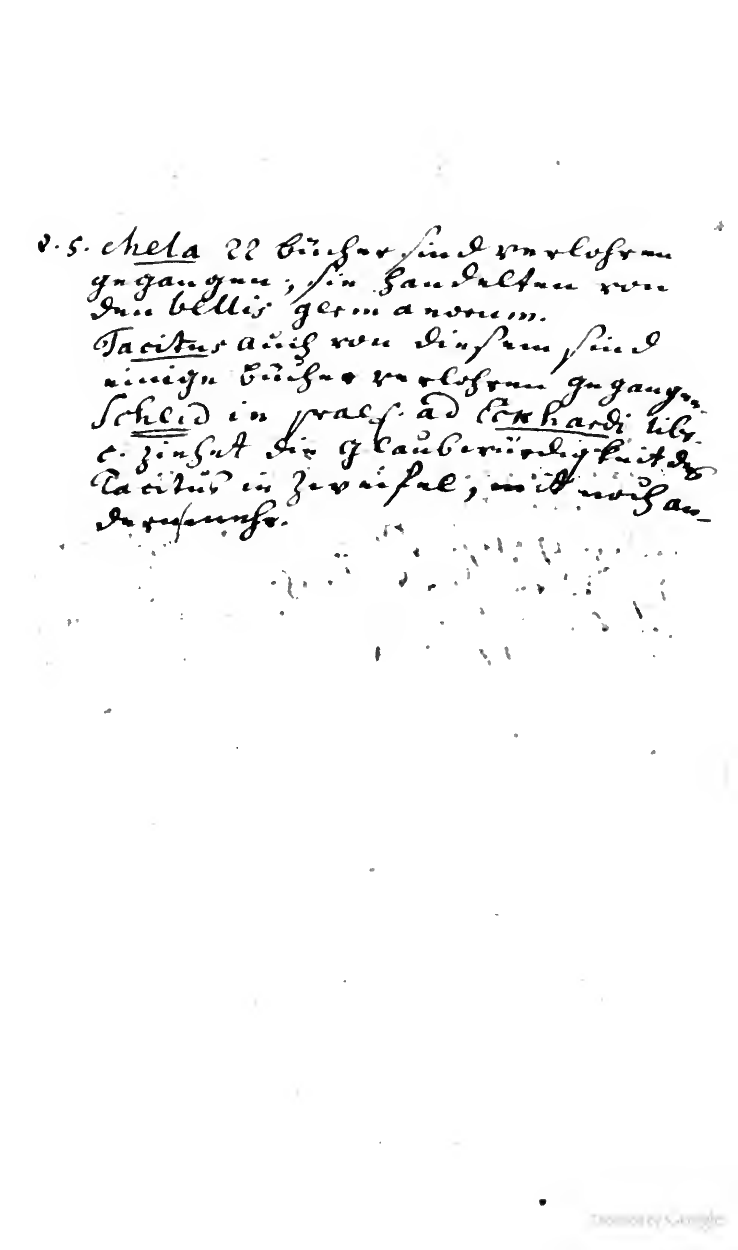 §. 5. Mela 22 bücher sind verlohren
gegangen; sie handelten von
den bellis germanorum.
Tacitus auch von diesem sind
einige bücher verlohren gegangen
Scheid in praef. ad Eckhardi libr.
c. ziehet die Glaubwürdigkeit des
Tacitus in Zweifel, mit noch an-
dern mehr.
Digitized by Google